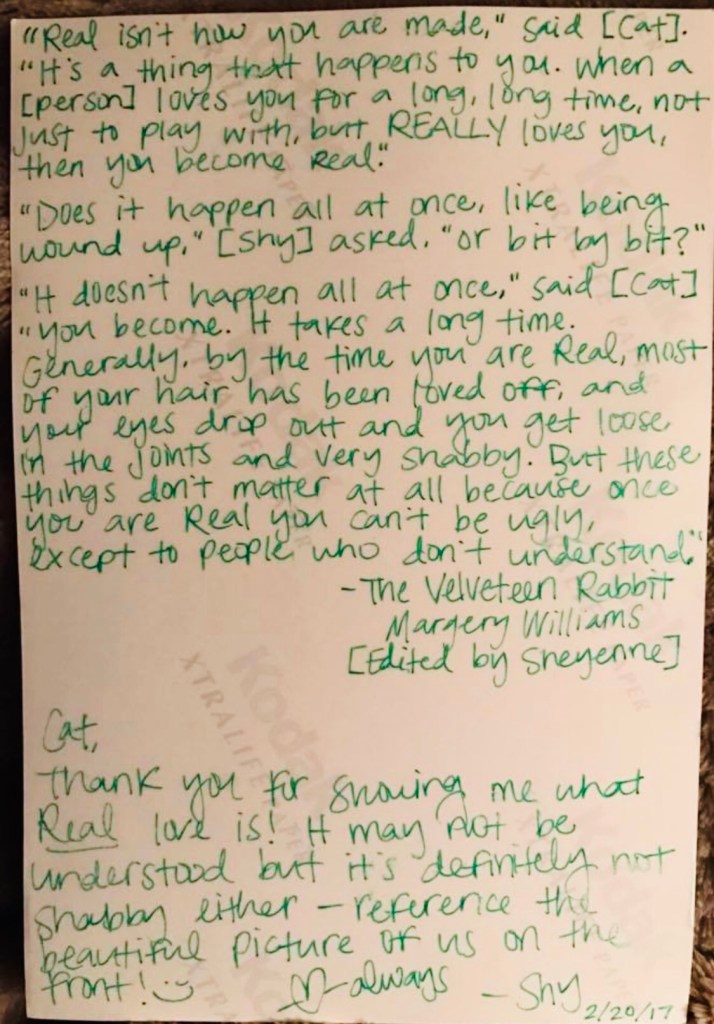 "Real isn't how you are made," said [Cat].
"It's a thing that happens to you. When a
[person] loves you for a long, long time, not
just to play with, but REALLY loves you,
then you become Real."
"Does it happen all at once, like being
wound up," [Shy] asked, "or bit by bit?"
"It doesn't happen all at once," said [Cat]
"You become. It takes a long time.
Generally, by the time you are Real, most
of your hair has been loved off, and
your eyes drop out and you get loose
in the joints and very shabby. But these
things don't matter at all because once
you are Real you can't be ugly,
except to people who don't understand."
-The Velveteen Rabbit
Margery Williams
[Edited by Sheyenne]
Cat,
Thank you for showing me what
Real love is! It may not be
understood but it's definitely not
shabby either - reference the
beautiful picture of us on the
front! :) ♡ always - Shy
2/20/17
Kodak
XTRALIFE PAPER